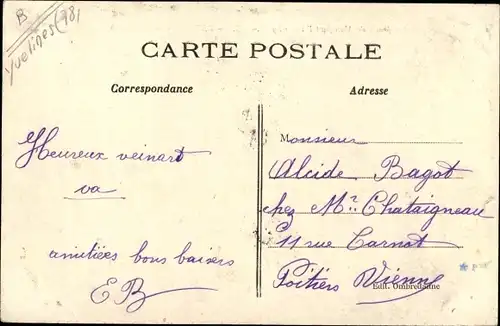 B
Yvelines (78)
CARTE POSTALE
Correspondance
Adresse
Heureux veinart
va
amitiées bons baisers
EB
Monsieur
Alcide Bagot
chez Mr. Chataigneau
11 rue Carnot
Poitiers Vienne
Edit. Ombredanne